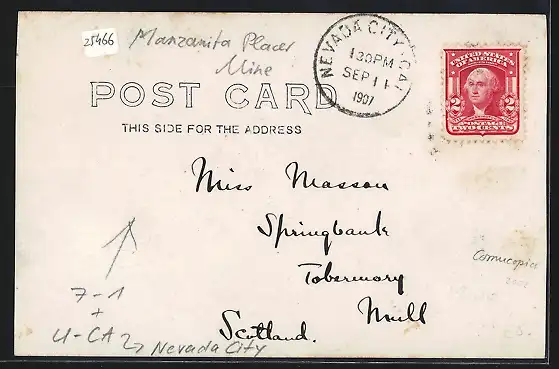 25466
Manzanita Placer
Mine
NEVADA CITY, CAL.
130PM
SEP 11
1907
UNITED STATES
OF AMERICA
2 2
POSTAGE
TWO CENTS
POST CARD
THIS SIDE FOR THE ADDRESS
Miss Masson
Springbank
Tobermory
Mull
Scotland.
Cornucopia
7-1
+
U-CA
Nevada City